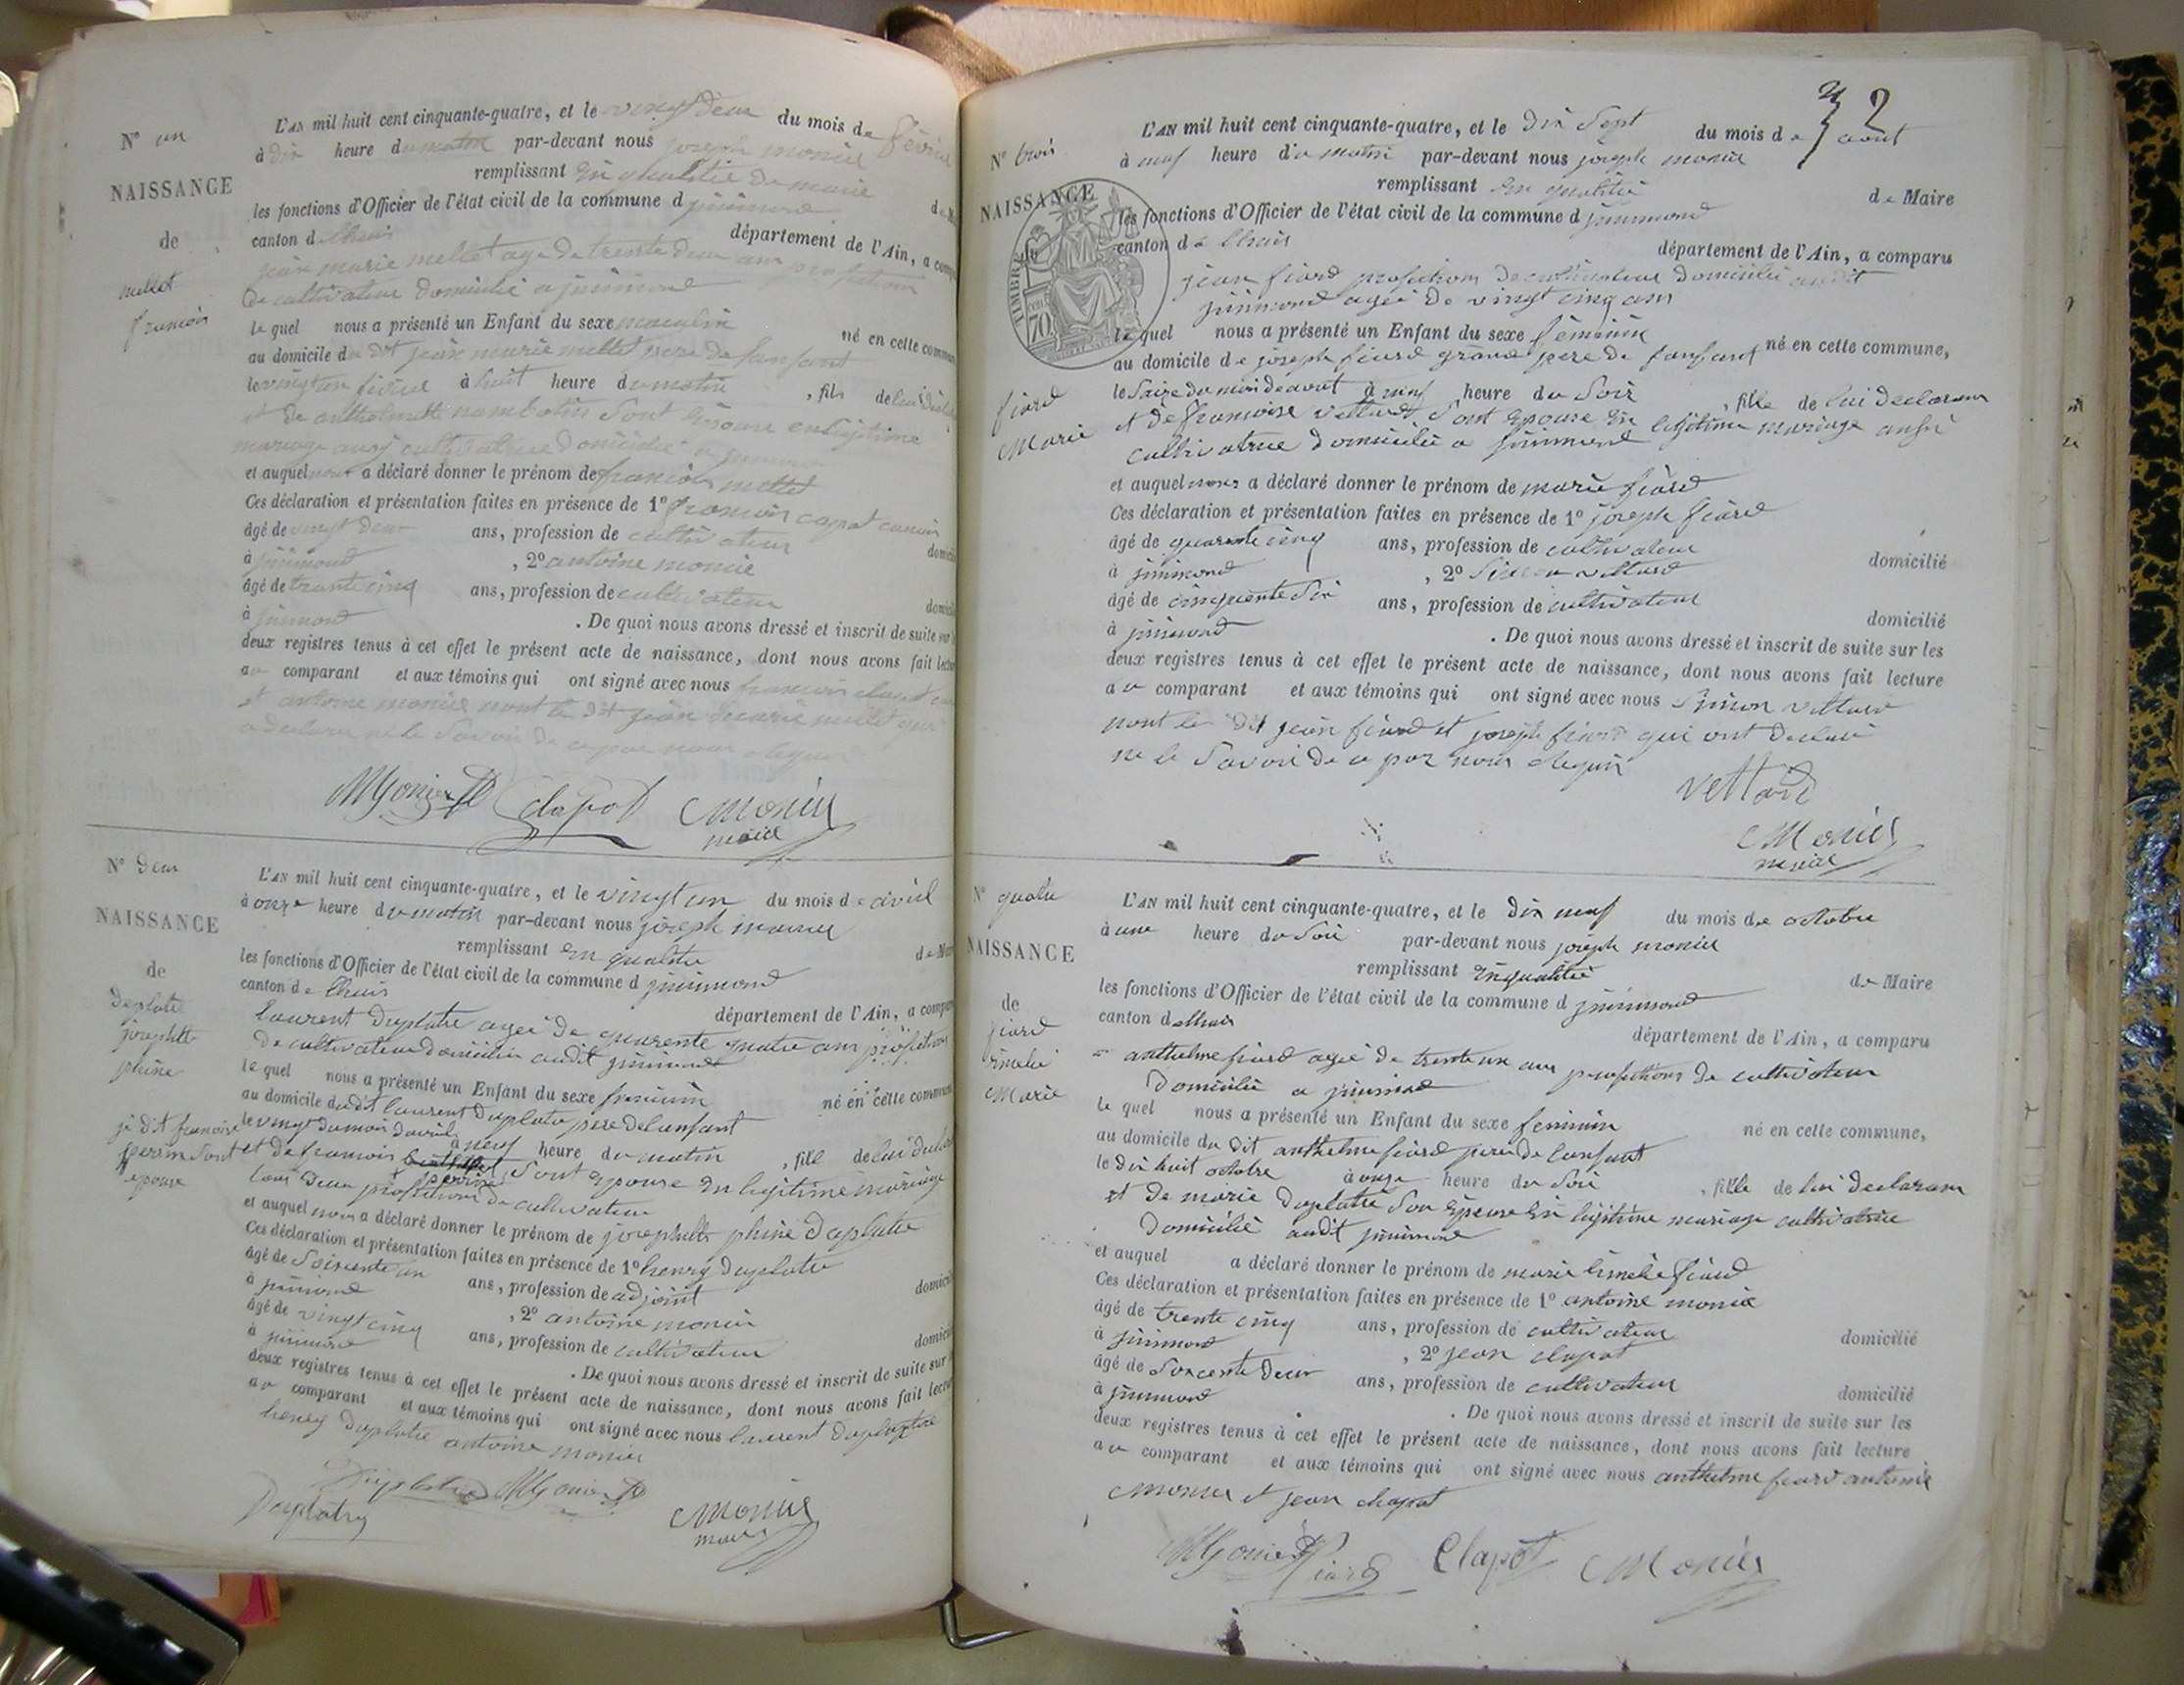 N° un
NAISSANCE
de
mellet
francois
L'AN mil huit cent cinquante-quatre, et le vingt deux du mois de févrie
à dix heure du matin par-devant nous joseph monier
remplissant en qualitié de maire
les fonctions d'Officier de l'état civil de la commune d
canton d lhuis département de l'Ain, a comp
jean marie mellet age de trente deux ans profetion
de cultivateur domicilié a
le quel nous a présenté un Enfant du sexe masculin né en cette commun
au domicile du dit jean marie mellet pere de lanfant
le vingt un à huit heure du matin , fils de lui
et de anthelmette sont épouse en légitime
mariage ausi cultivatrice domicilié a
et auquel nous a déclaré donner le prénom de francois mellet
Ces déclaration et présentation faites en présence de 1° francois
âgé de vingt deux ans, profession de cultivateur
à domicil
, 2° antoine monier
âgé de trante cinq ans, profession de cultivateur
à domicil
. De quoi nous avons dressé et inscrit de suite sur
deux registres tenus à cet effet le présent acte de naissance, dont nous avons fait lectu
au comparant et aux témoins qui ont signé avec nous francois
et antoine monier nont le dit jean marie mellet qui
a declare ne le savoir de ce par nous
Monier clapot Monier
maire
N° deux
NAISSANCE
de
duplatre
josephte
phine
je dit francoise
perrin sont
epouse
L'AN mil huit cent cinquante-quatre, et le vingt un du mois de avril
à onze heure du matin par-devant nous joseph monier
remplissant en qualitie
les fonctions d'Officier de l'état civil de la commune d
canton de lhuis département de l'Ain, a compa
laurent duplatre agé de quarente quatre ans profetion
de cultivateur domicilié audit
le quel nous a présenté un Enfant du sexe feminin né en cette commun
au domicile du dit laurent duplatre pere de lenfant
le vingt du mois davril à neuf heure du matin , fille de lui
et de francois perrine sont epouse en legitime mariage
tous deux profetion de cultivateur
et auquel nous a déclaré donner le prénom de josephte phine duplatre
Ces déclaration et présentation faites en présence de 1° henry duplatre
âgé de soisente un ans, profession de adjoint
à domicil
, 2° antoine monier
âgé de vingt cinq ans, profession de cultivateur
à domici
. De quoi nous avons dressé et inscrit de suite sur
deux registres tenus à cet effet le présent acte de naissance, dont nous avons fait lectu
au comparant et aux témoins qui ont signé avec nous laurent duplatre
henry duplatre antoine monier
Duplatre Monier
Monier
maire
32
N° trois
NAISSANCE
fiard
Marie
L'AN mil huit cent cinquante-quatre, et le dix sept du mois de aout
à neuf heure du matin par-devant nous joseph monier
remplissant en qualitié de Maire
les fonctions d'Officier de l'état civil de la commune d
canton de lhuis département de l'Ain, a comparu
TIMBRE
70
jean fiard profetions de cultivateur domicilié audit
agée de vingt cinq ans
le quel nous a présenté un Enfant du sexe féminin né en cette commune,
au domicile de joseph fiard grand pere de lanfant
le saize du mois de aout à neuf heure du soir , fille de lui declarans
et de francoise vettard sont epouse en legitime mariage ausi
cultivatrice domicilié a
et auquel nous a déclaré donner le prénom de marie fiard
Ces déclaration et présentation faites en présence de 1° joseph fiard
âgé de quarente cinq ans, profession de cultivateur
à domicilié
, 2° vettard
âgé de cinquente six ans, profession de cultivateur
à domicilié
. De quoi nous avons dressé et inscrit de suite sur les
deux registres tenus à cet effet le présent acte de naissance, dont nous avons fait lecture
au comparant et aux témoins qui ont signé avec nous Simon vettard
nont le dit jean fiard et joseph fiard qui ont declaré
ne le savoir de ce par nous
vettard
Monier
maire
N° quatre
NAISSANCE
de
fiard
Marie
L'AN mil huit cent cinquante-quatre, et le dix neuf du mois de octobre
à une heure du soir par-devant nous joseph monier
remplissant en qualitié de Maire
les fonctions d'Officier de l'état civil de la commune d
canton d lhuis département de l'Ain, a comparu
anthelme fiard agée de trente un ans profetions de cultivateur
domicilié a
le quel nous a présenté un Enfant du sexe feminin né en cette commune,
au domicile du dit anthelme fiard pere de lanfant
le dix huit octobre à onze heure du soir , fille de lui declarans
et de marie duplatre son epouse en legitime mariage cultivatrice
domicilié audit
et auquel a déclaré donner le prénom de marie fiard
Ces déclaration et présentation faites en présence de 1° antoine monier
âgé de trente cinq ans, profession de cultivateur
à domicilié
, 2° jean clapot
âgé de soxcente deux ans, profession de cultivateur
à domicilié
. De quoi nous avons dressé et inscrit de suite sur les
deux registres tenus à cet effet le présent acte de naissance, dont nous avons fait lecture
au comparant et aux témoins qui ont signé avec nous anthelme fiard antonie
monier et jean clapot
Monier fiard Clapot Monier